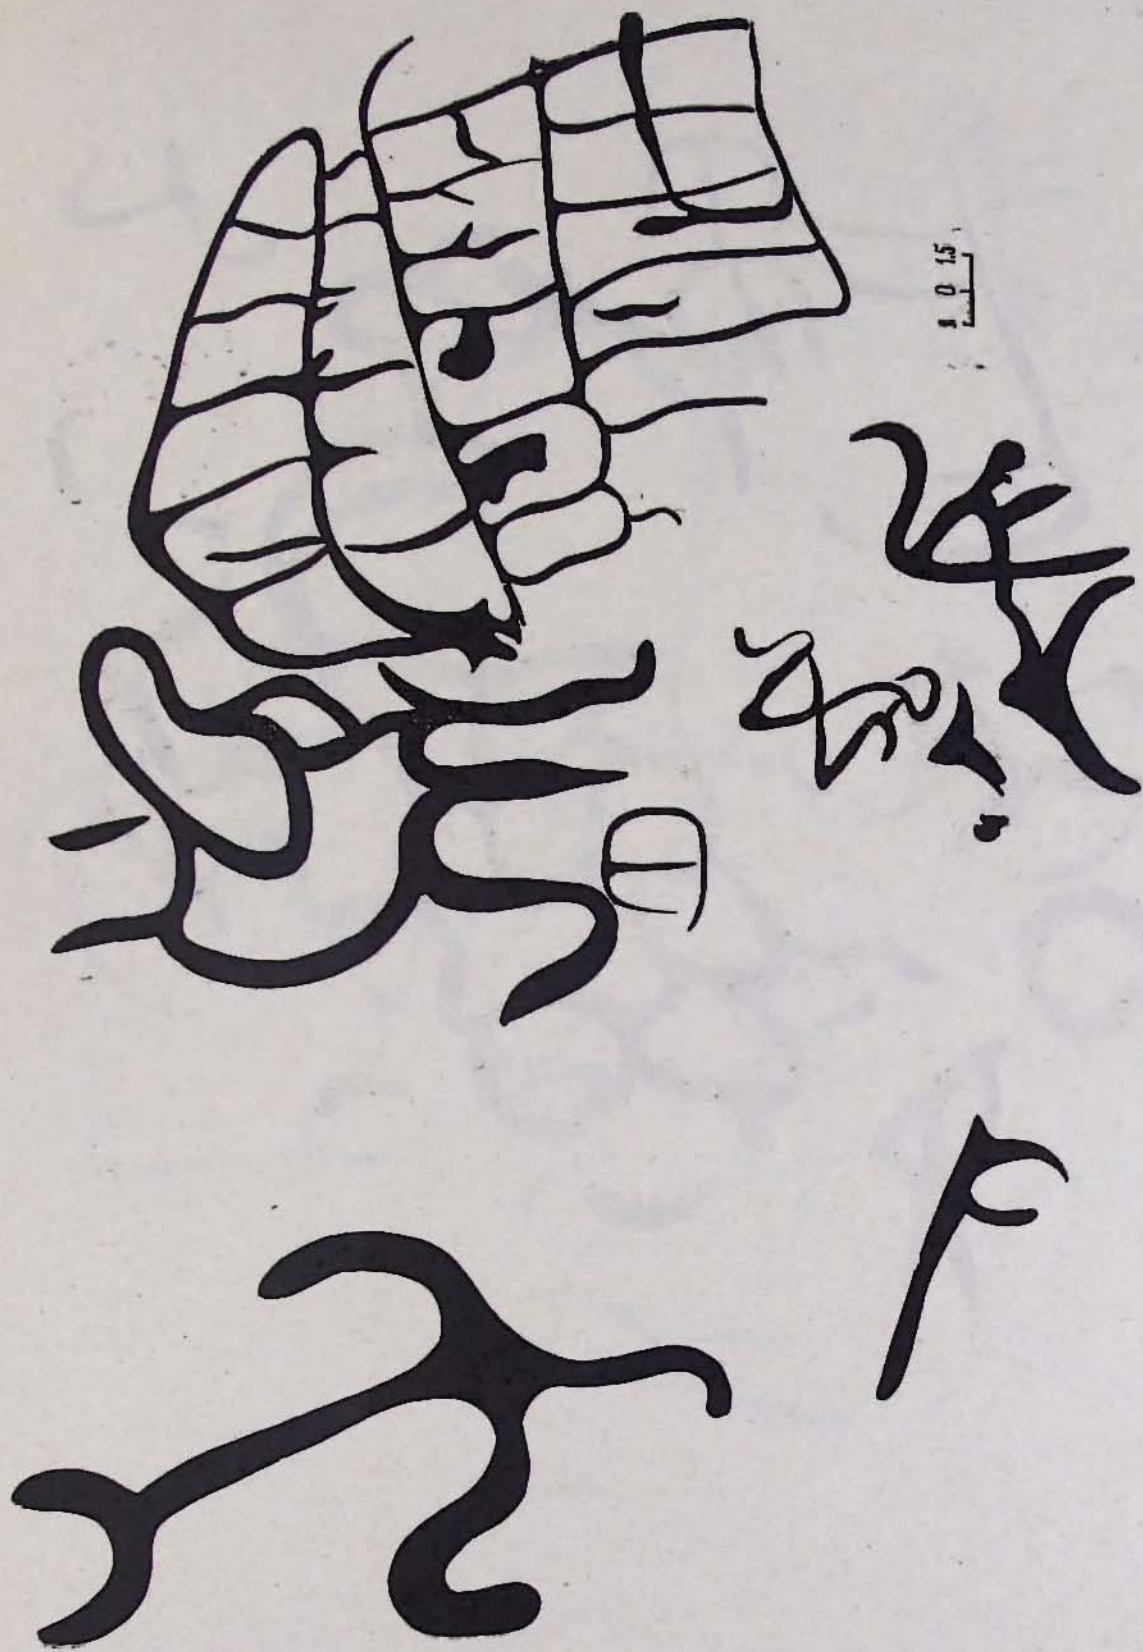 0 15